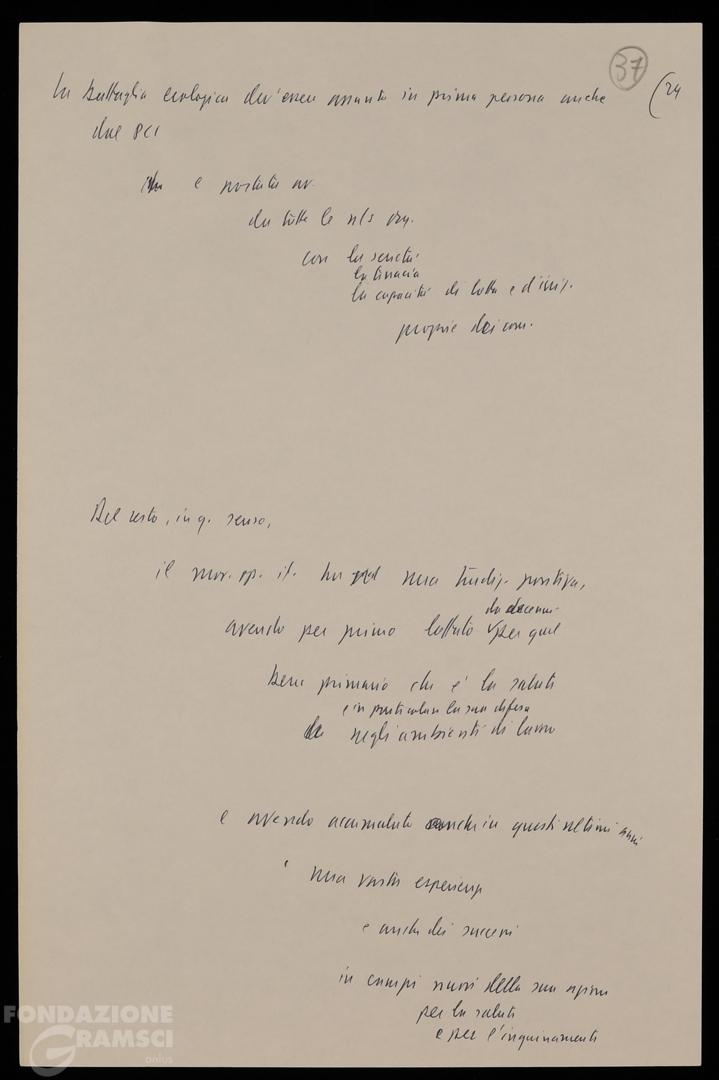 37
(24
La battaglia ecologica dev'essere assunta in prima persona anche
dal PCI
e portata av.
da tutte le ns org.
con la serietà
la tenacia
la capacità di lotta e d'iniz.
proprie dei com.
Del resto, in q. senso,
il mov. op. it. ha una tradiz. positiva,
da decenni
avendo per primo lottato per quel
bene primario che è la salute
e in particolare la sua difesa
negli ambienti di lavoro
e avendo accumulato anche in questi ultimi anni
una vasta esperienza
e anche dei successi
in campi nuovi della sua azione
per la salute
e per l'inquinamento
FONDAZIONE
GRAMSCI
onlus